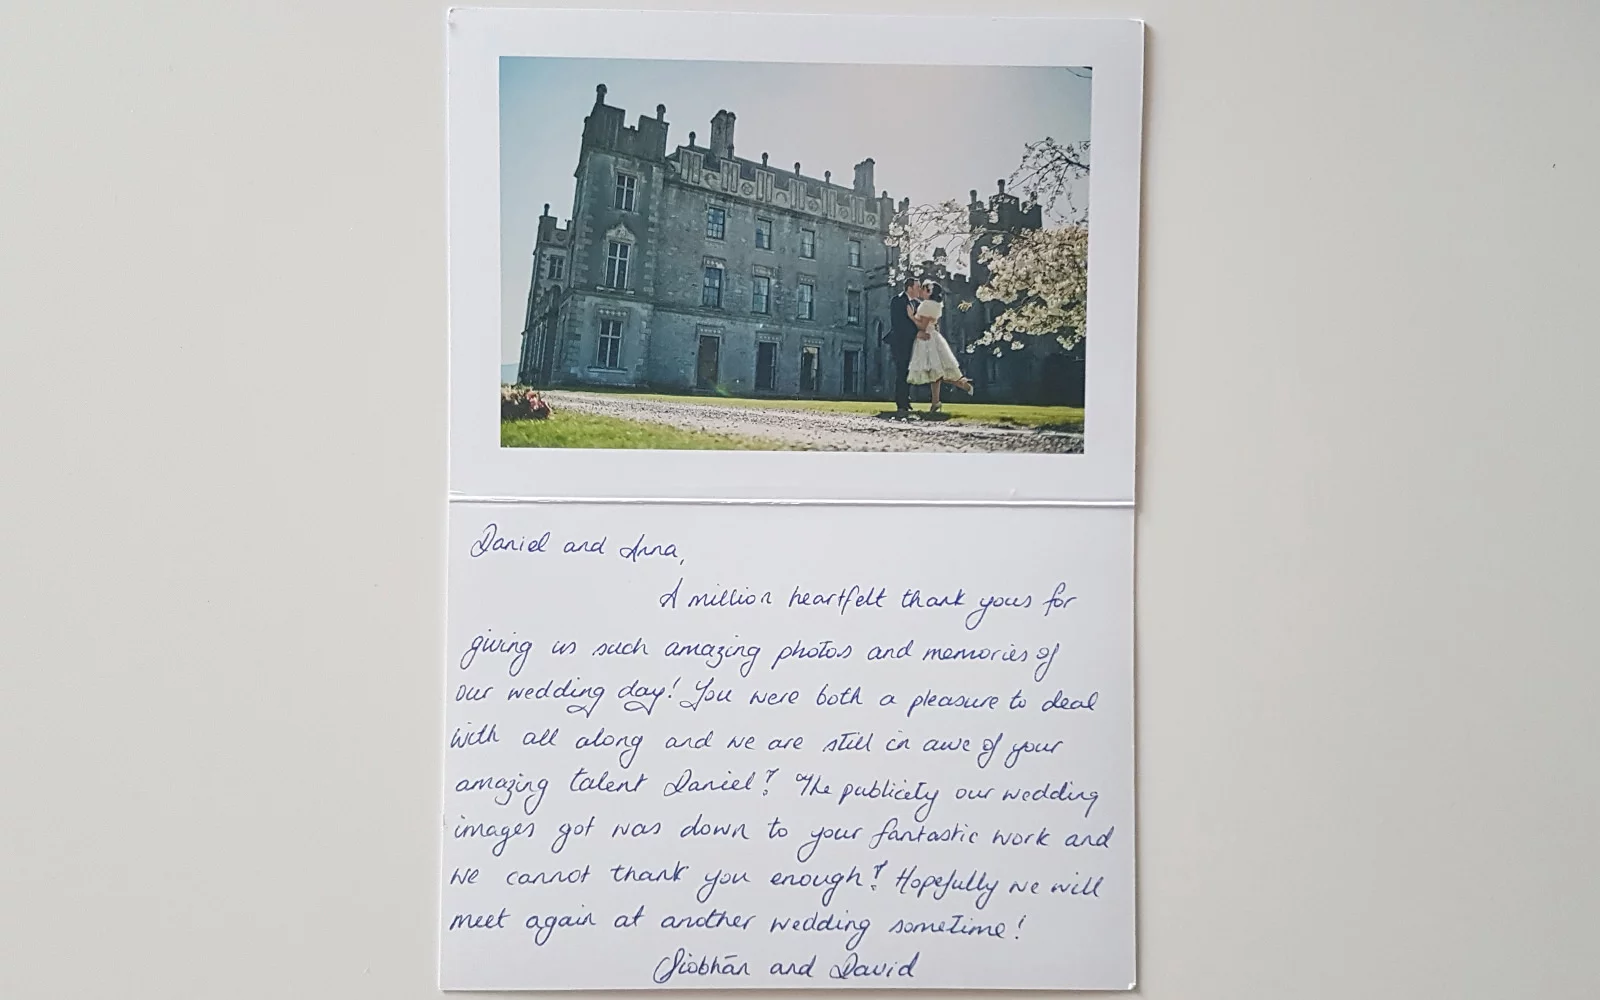 Daniel and Anna,
A million heartfelt thank yous for
giving us such amazing photos and memories of
our wedding day! You were both a pleasure to deal
with all along and we are still in awe of your
amazing talent Daniel! The publicity our wedding
images got was down to your fantastic work and
we cannot thank you enough! Hopefully we will
meet again at another wedding sometime!
Siobhán and David